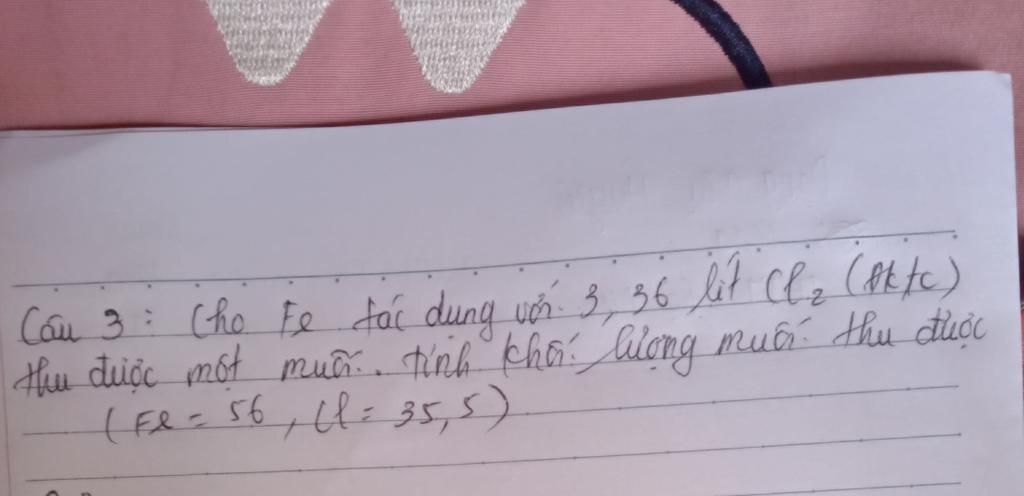 Câu 3: Cho Fe tác dụng với 3,36 lít Cl₂ (đktc)
thu được một muối. tính khối lượng muối thu được
(Fe = 56, Cl = 35,5)